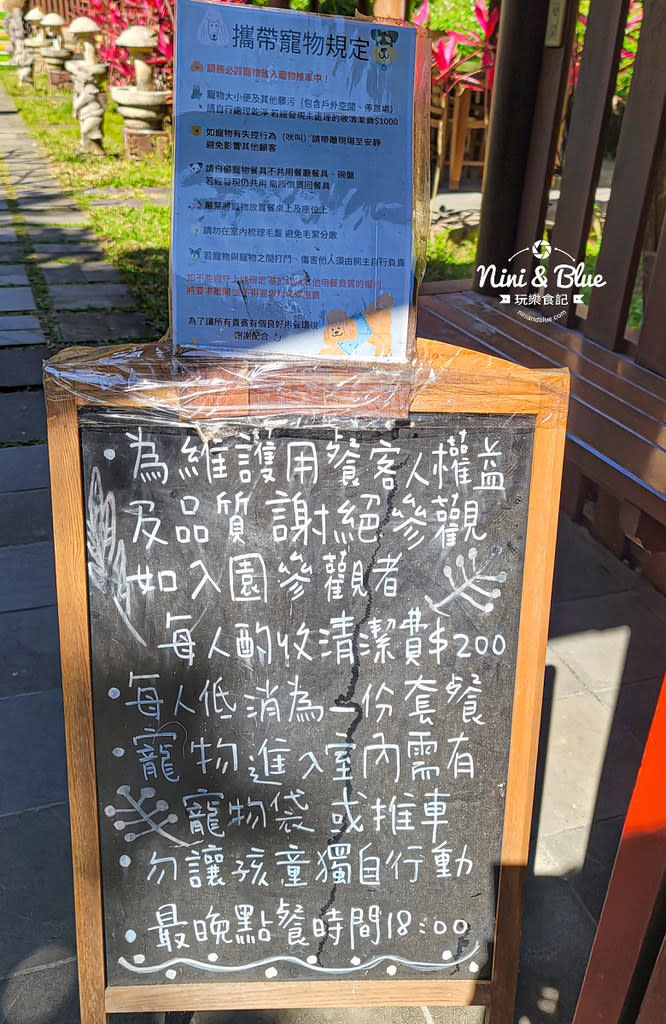 攜帶寵物規定
請務必將寵物放入寵物推車中！
寵物大小便及其他髒污（包含戶外空間、
請自行處理乾淨 若經發現未處理酌收清潔費$1000
如寵物有失控行為（吠叫）請帶離現場至安靜
避免影響其他顧客
請自備寵物餐具不共用餐廳餐具、碗盤
若經發現仍共用 需照價買回餐具
嚴禁將寵物放置餐桌上及座位上
請勿在室內梳理毛髮 避免毛絮分散
若寵物與寵物之間打鬥、傷害他人須由飼主自行負責
如不能遵守上述規定
將要求離開
為了讓所有貴賓有個良好用餐環境
謝謝配合
Nini & Blue
玩樂食記
niniandblue.com
・為維護用餐客人權益
及品質 謝絕參觀
如入園參觀者
每人酌收清潔費$200
・每人低消為一份套餐
・寵物進入室內需有
寵物袋 或推車
・勿讓孩童獨自行動
・最晚點餐時間18:00